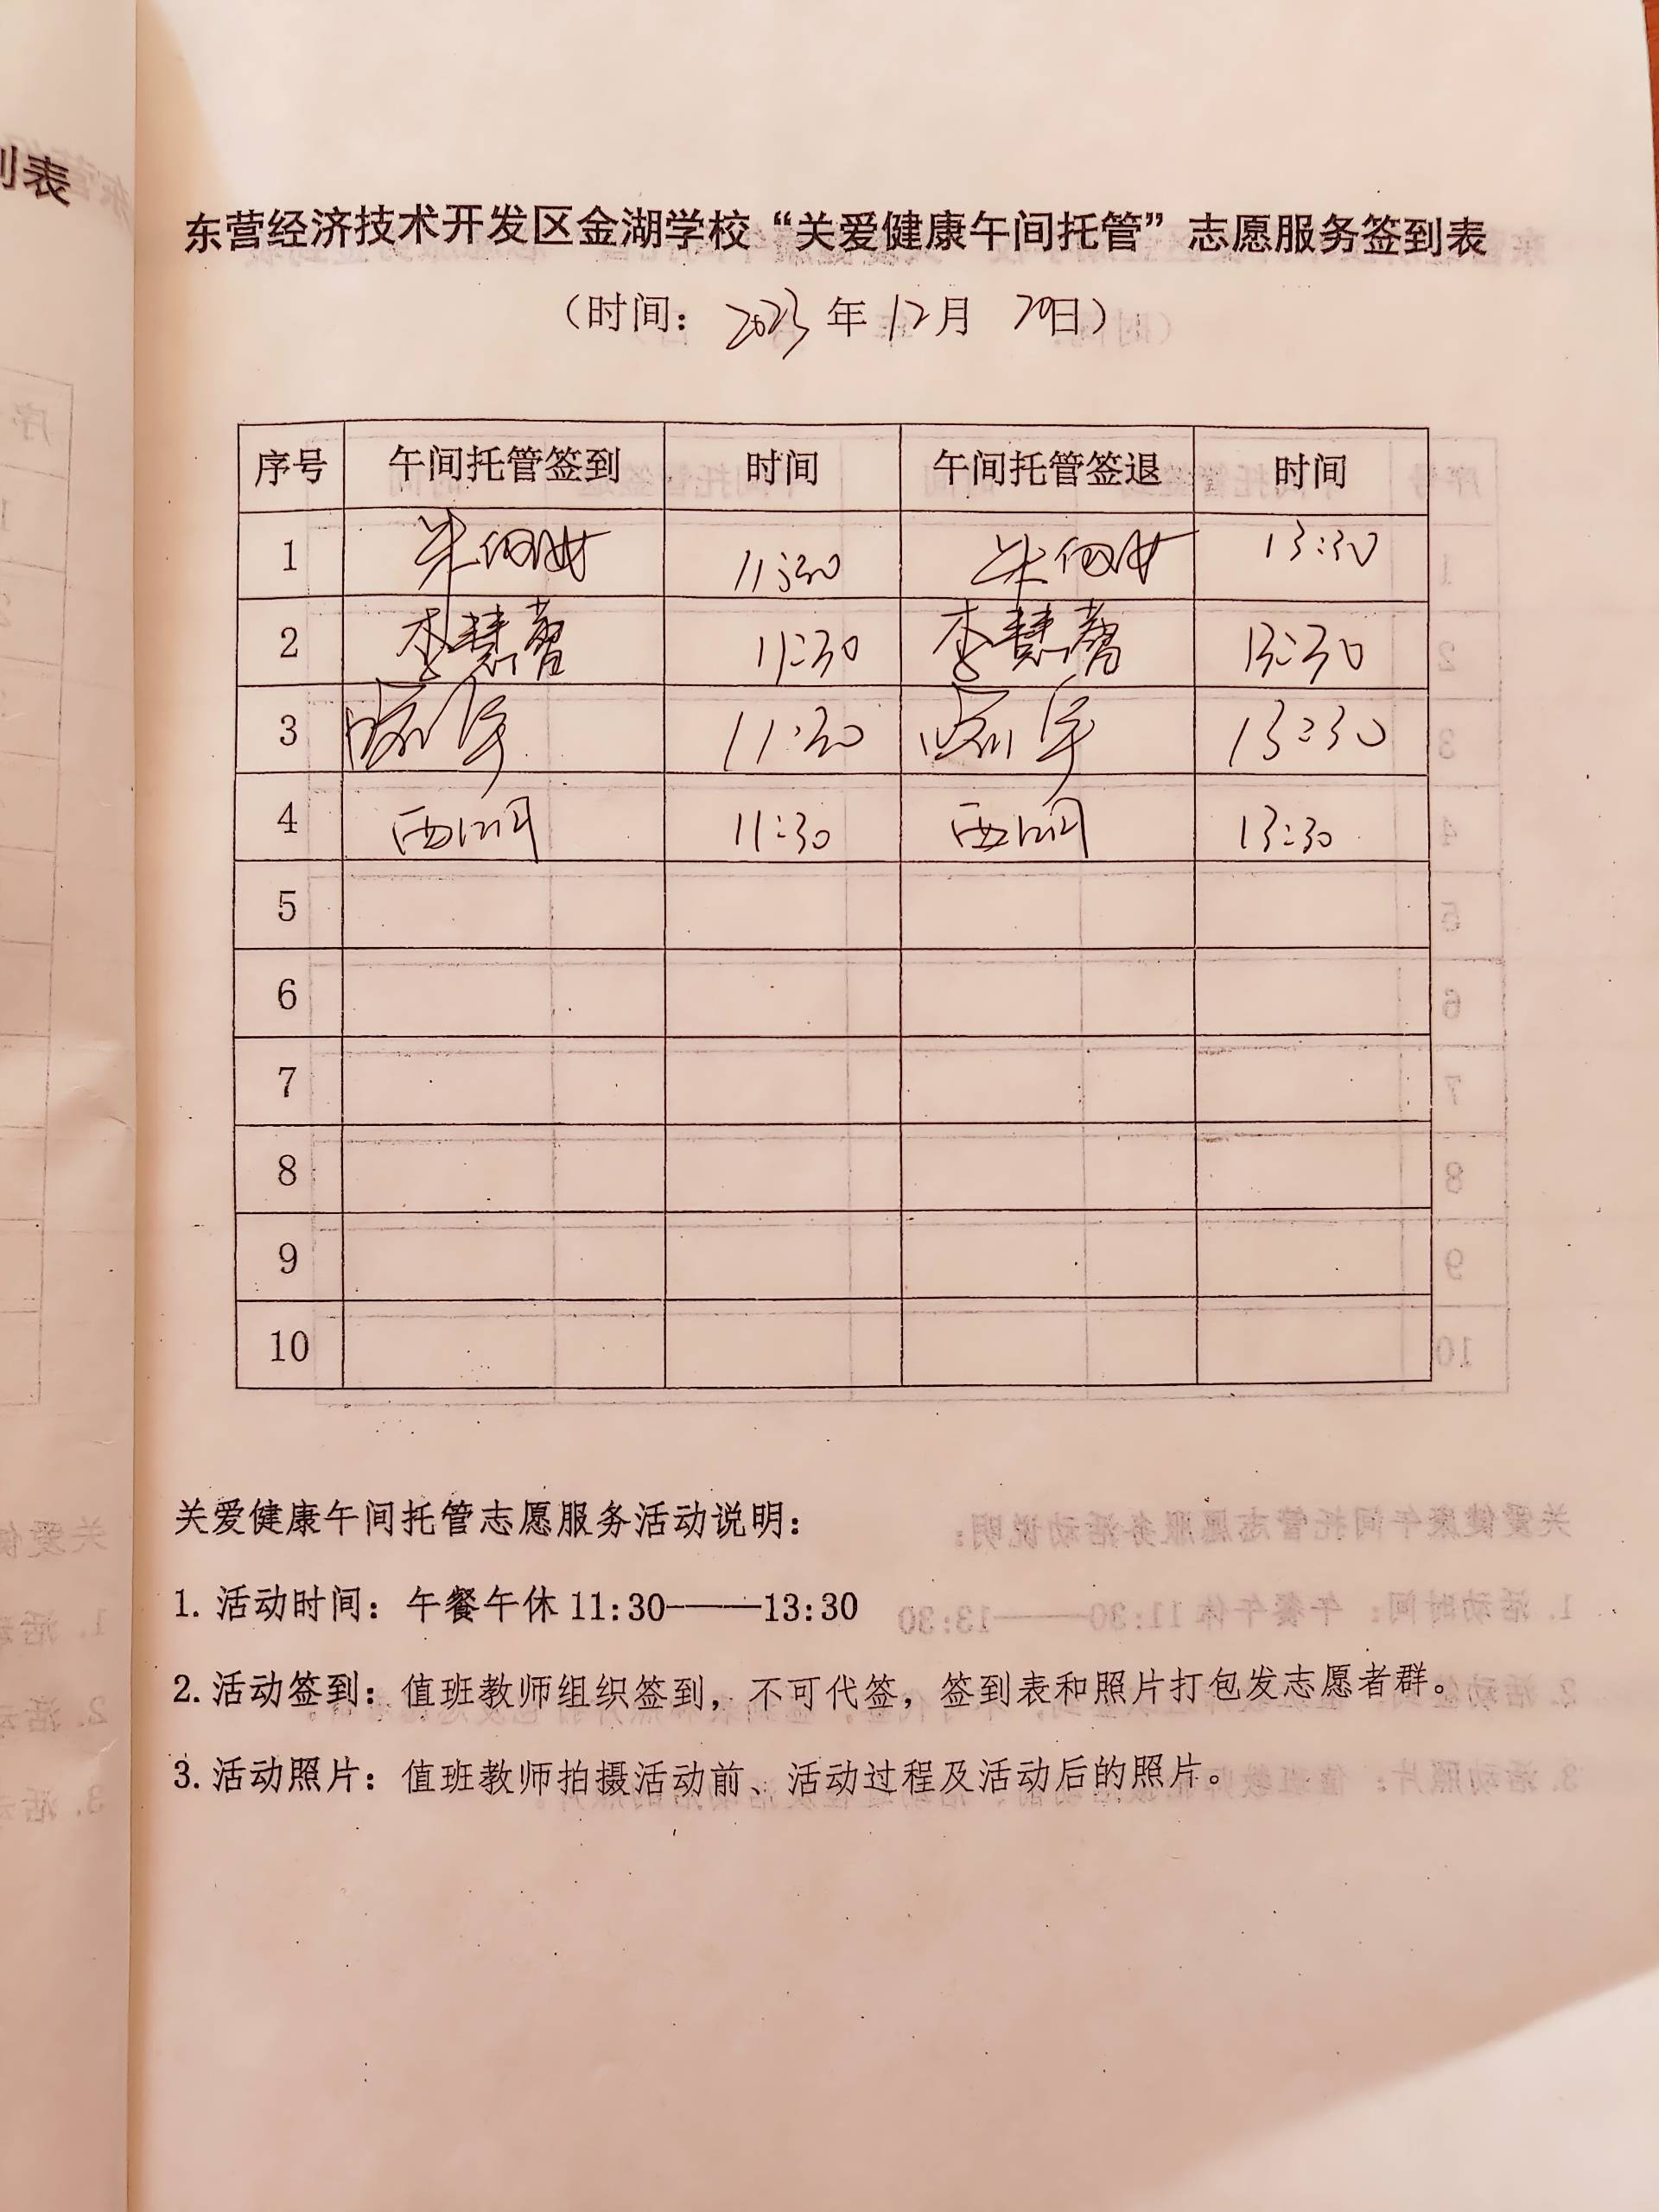 东营经济技术开发区金湖学校“关爱健康午间托管”志愿服务签到表
（时间：2023年12月20日）
序号 午间托管签到 时间 午间托管签退 时间
1 11:30 13:30
2 李慧馨 11:30 李慧馨 13:30
3 11:30 13:30
4 11:30 13:30
5
6
7
8
9
10
关爱健康午间托管志愿服务活动说明：
1. 活动时间：午餐午休 11:30——13:30
2. 活动签到：值班教师组织签到，不可代签，签到表和照片打包发志愿者群。
3. 活动照片：值班教师拍摄活动前、活动过程及活动后的照片。